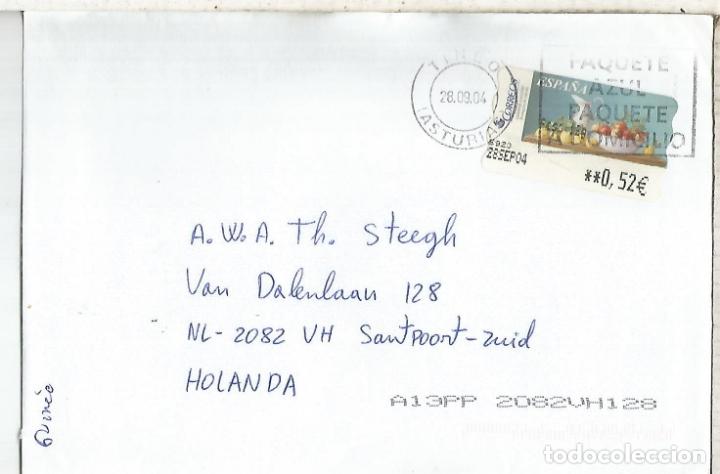 TINEO
28.09.04
(ASTURIAS)
PAQUETE
AZUL
PAQUETE
A DOMICILIO
ESPAÑA
CORREOS
28SEP04
**0,52€
A.W.A. Th. Steegh
Van Dalenlaan 128
NL-2082 VH Santpoort-Zuid
HOLANDA
A13PP 2082VH128
todocoleccion